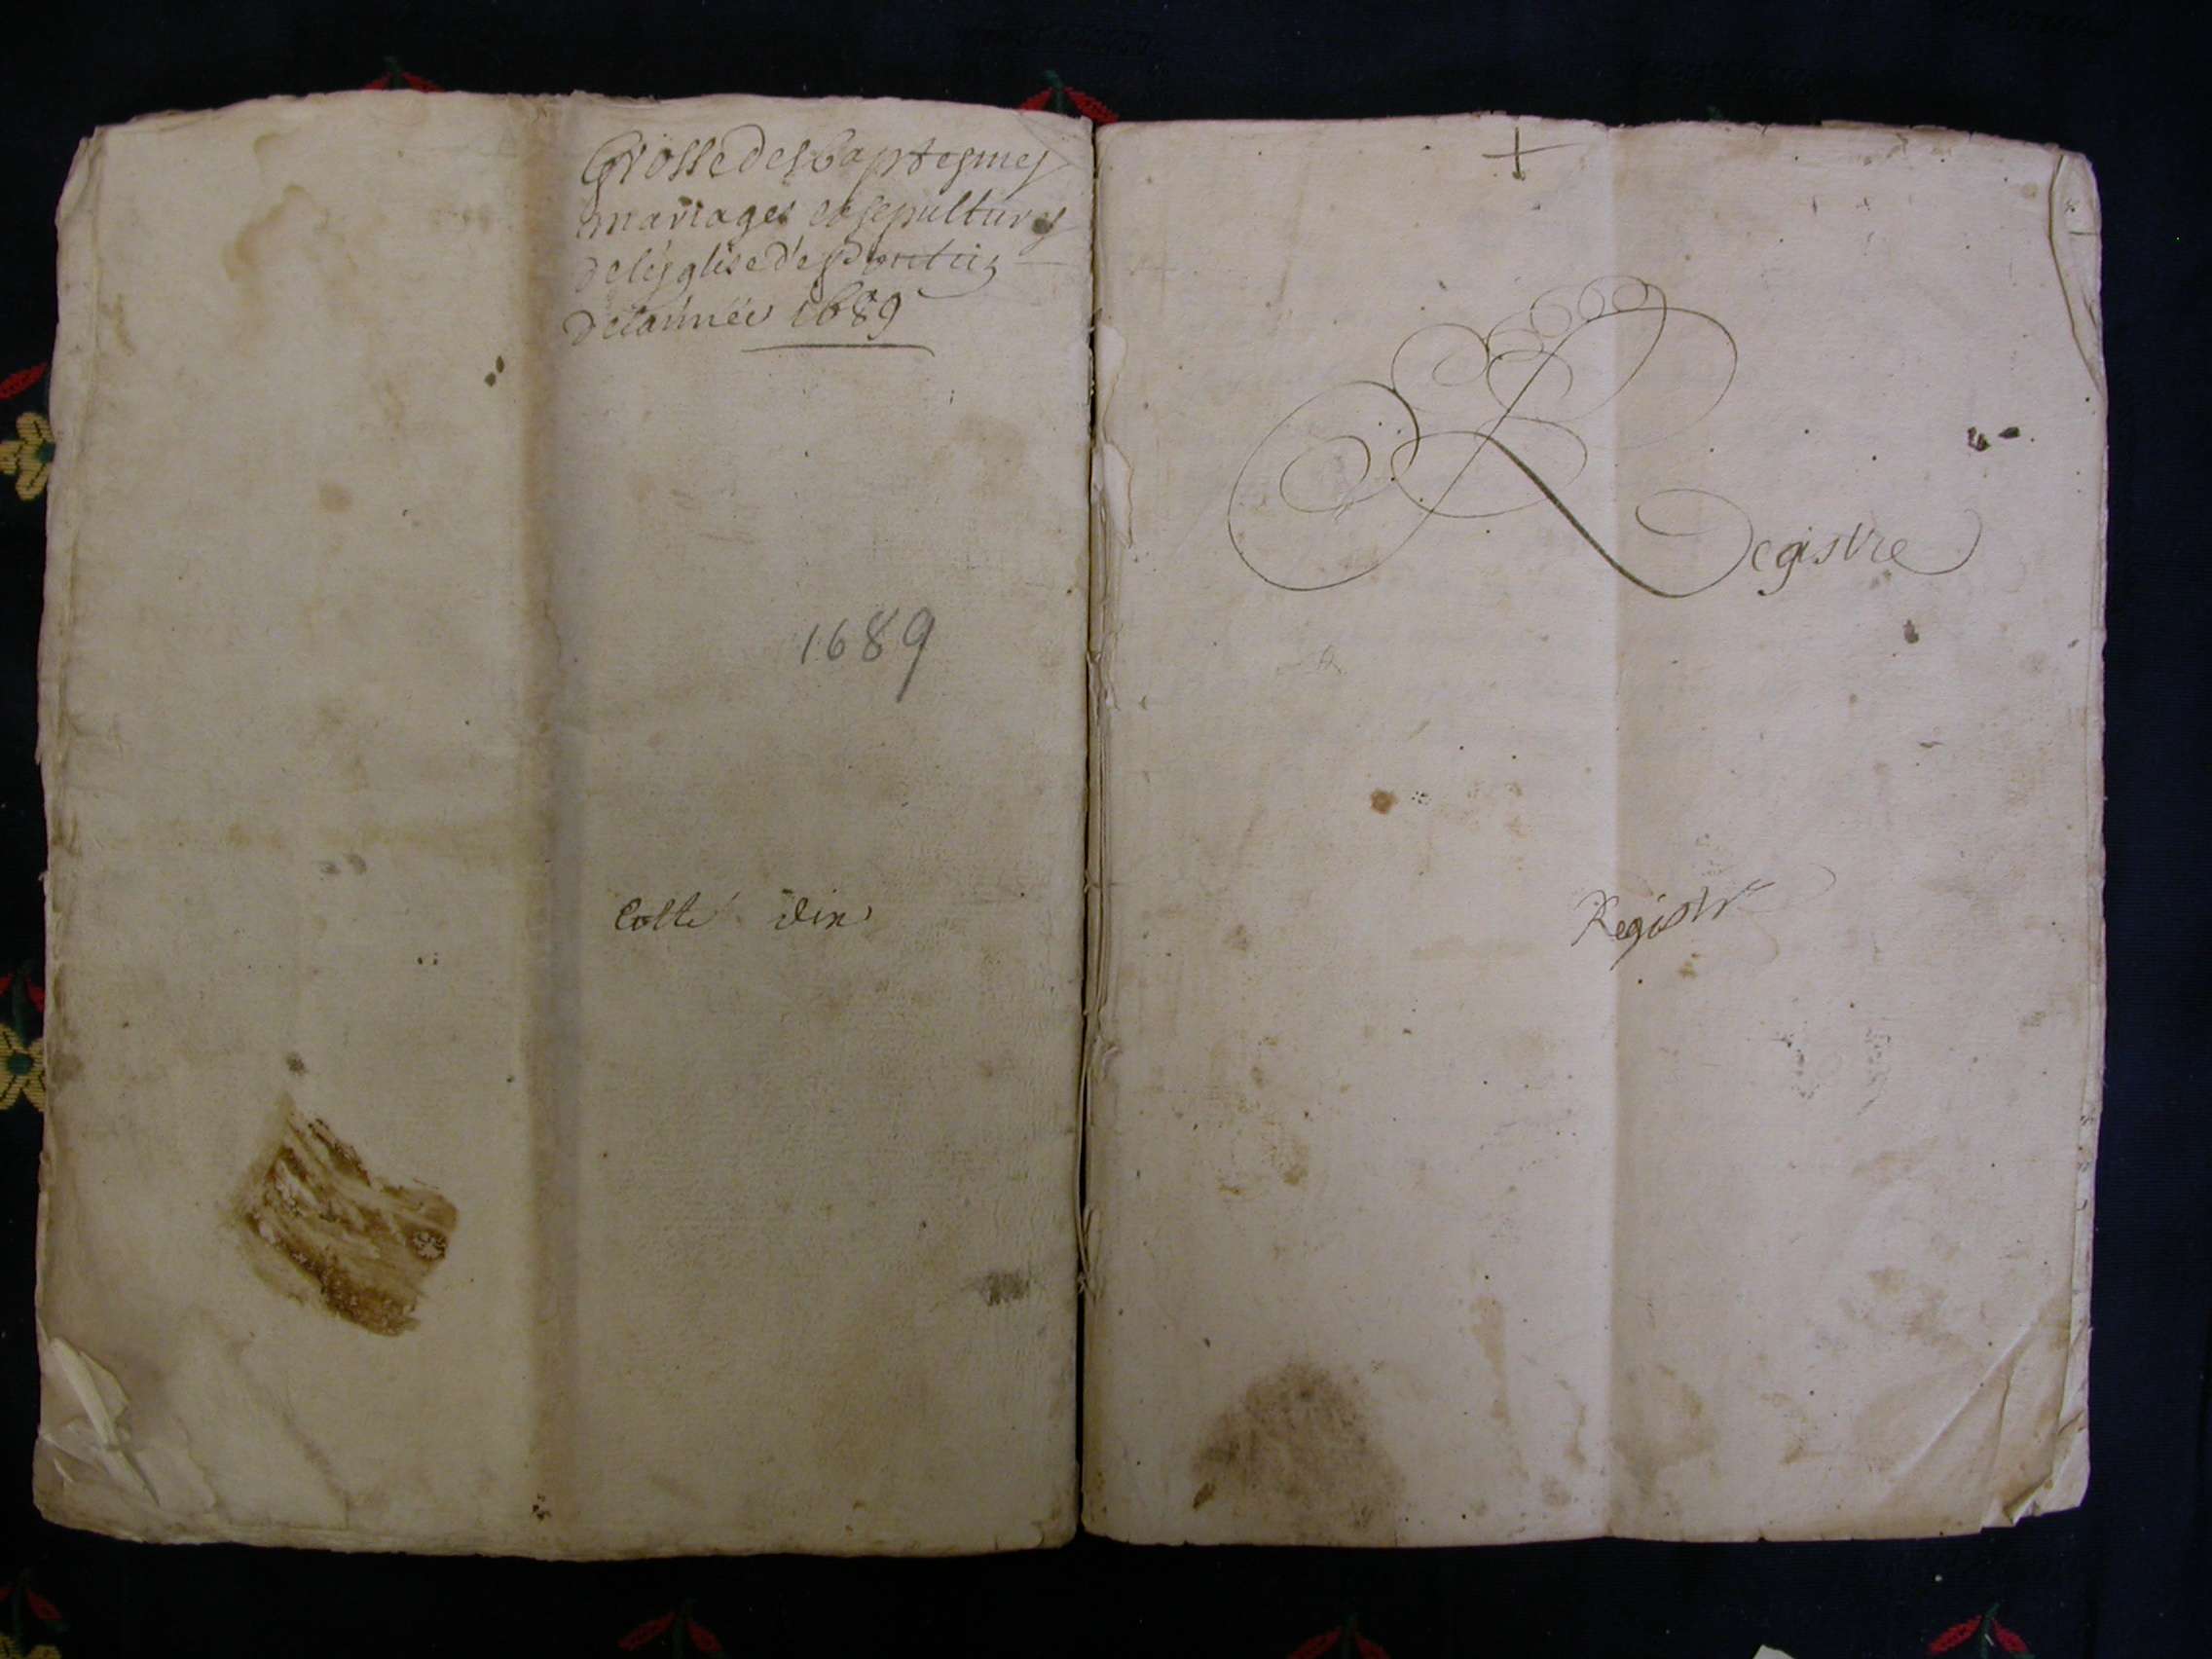 Grosse des baptesmes
mariages et sepultures
de lésglise dé
de lannéé 1689
1689
Cotté dix
Registre
Registre